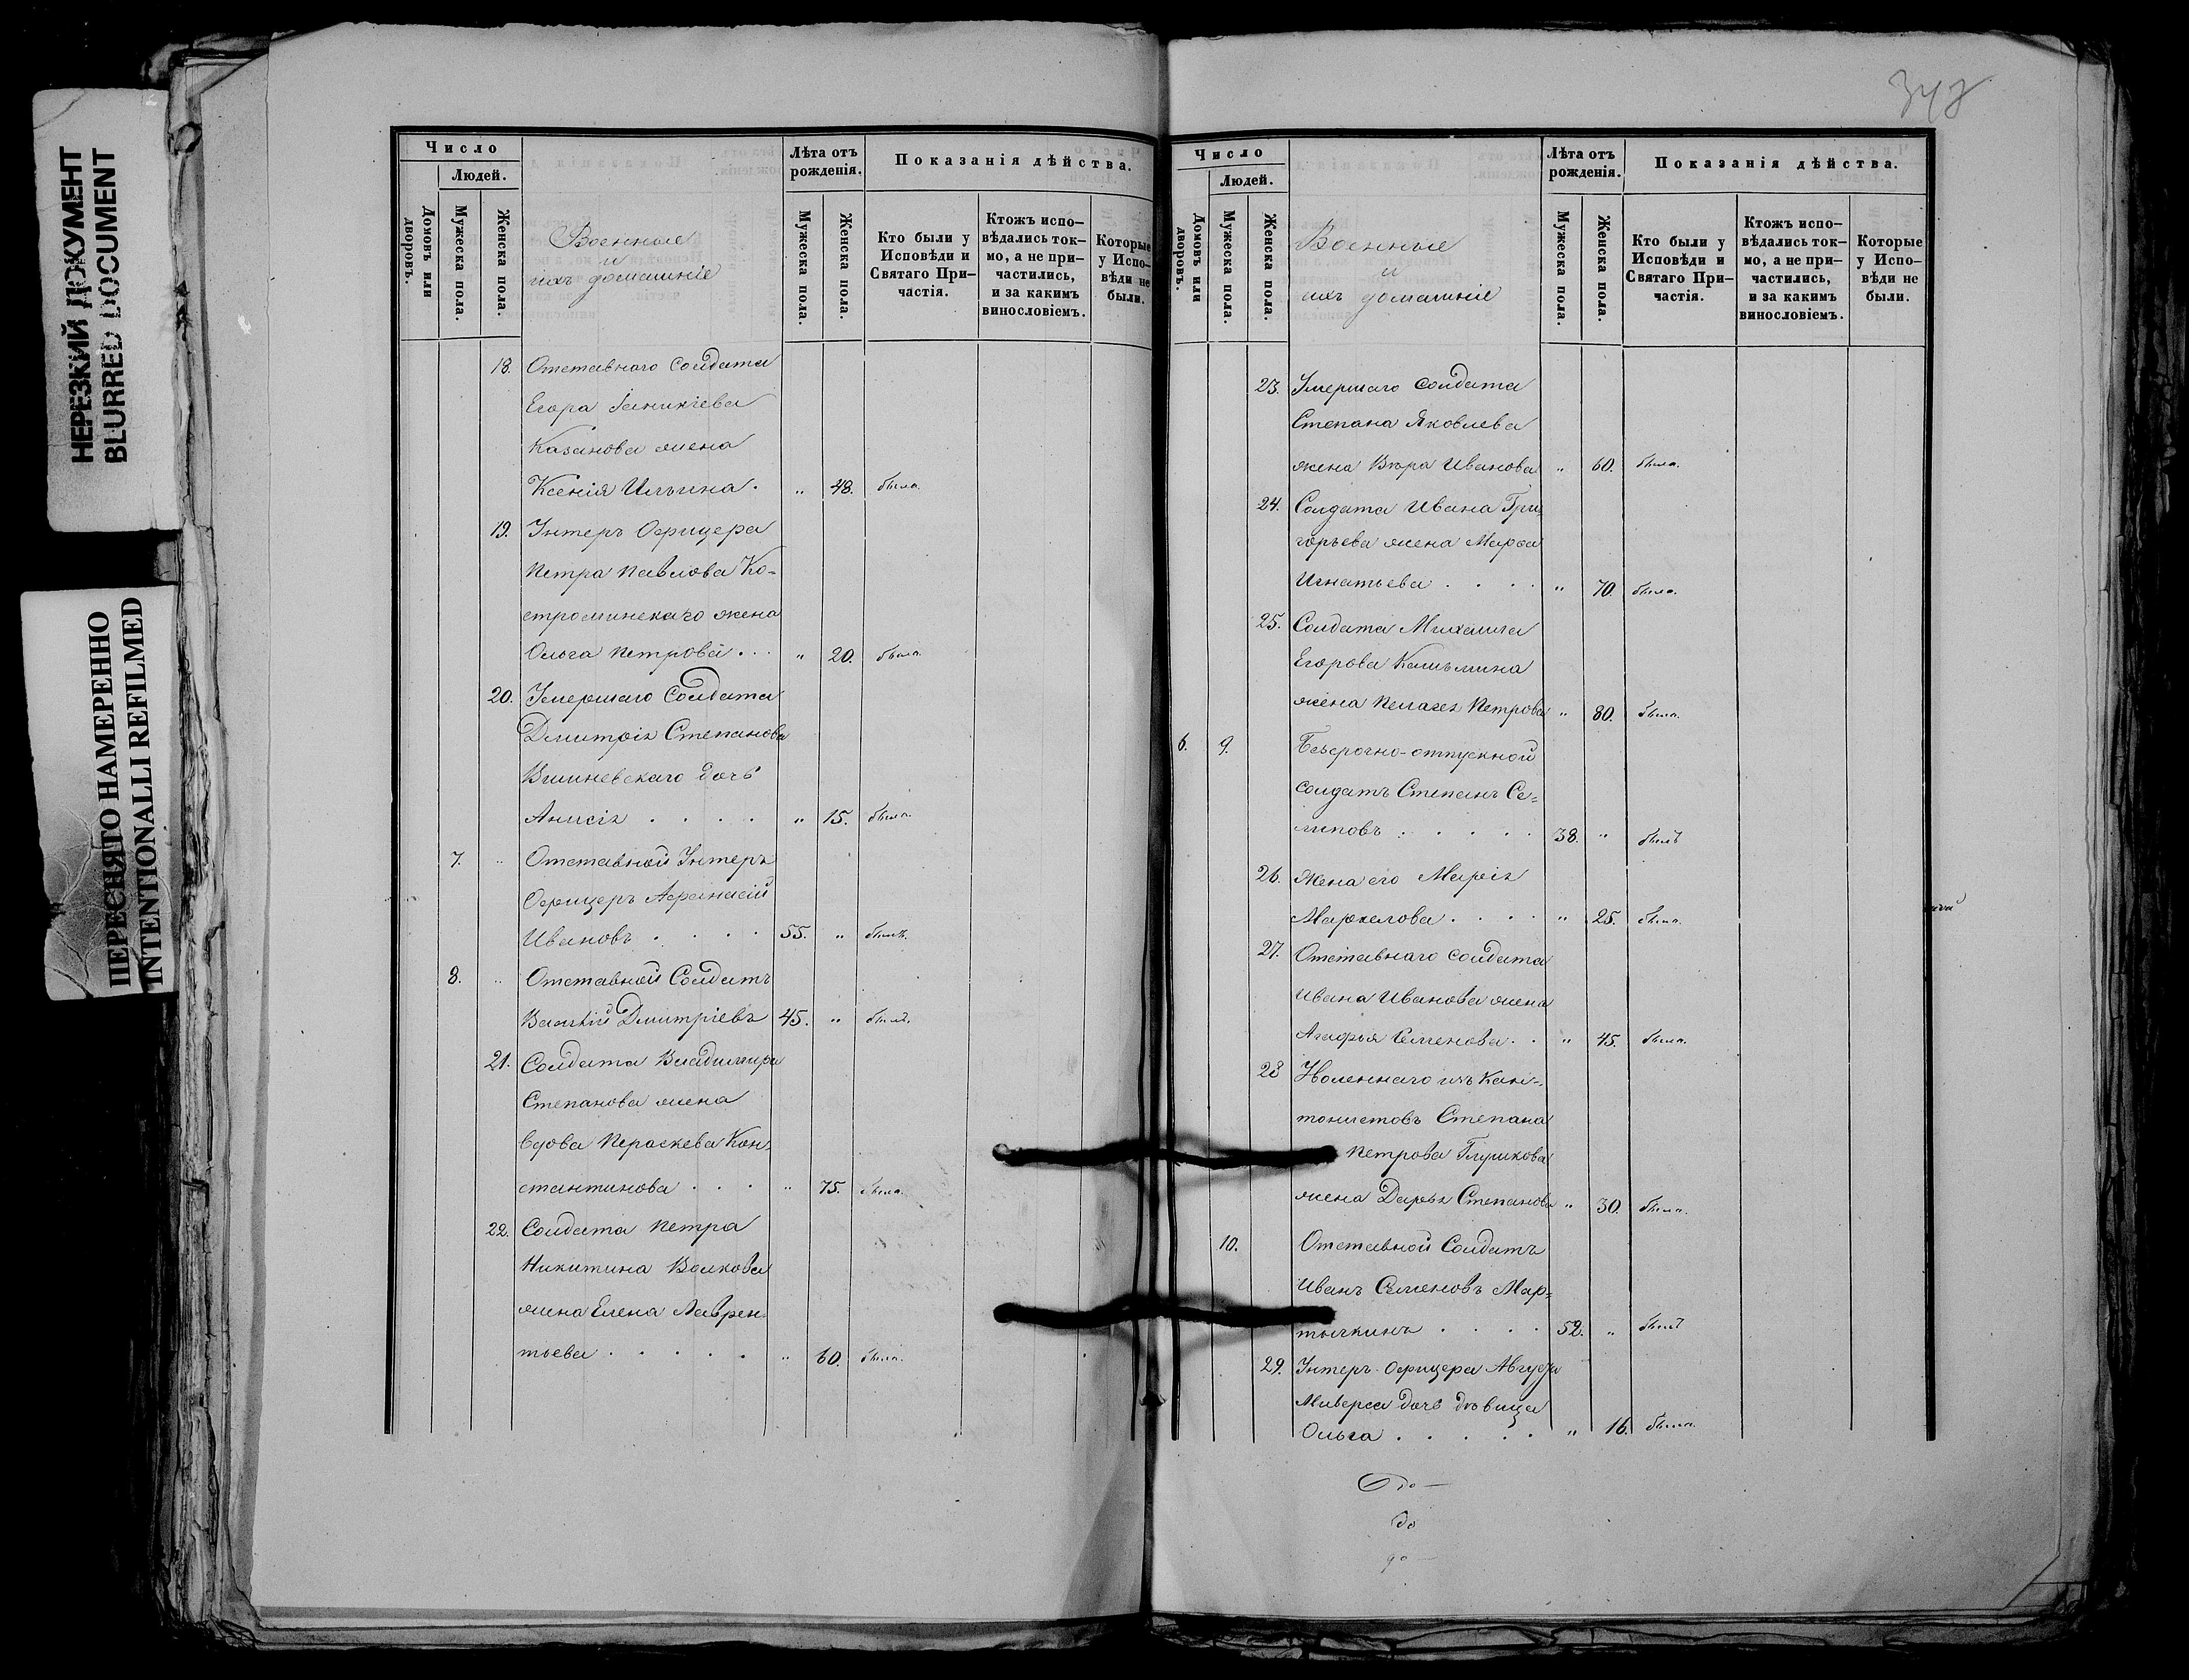 НЕРЕЗКИЙ ДОКУМЕНТ
BLURRED DOCUMENT
ПЕРЕСНЯТО НАМЕРЕННО
INTENTIONALLI REFILMED
Число
Людей.
Домовъ или дворовъ.
Мужеска пола.
Женска пола.
Военные
и
ихъ домашніе
Лѣта отъ рожденія.
Мужеска пола.
Женска пола.
Показанія дѣйства.
Кто были у Исповѣди и Святаго При-частія.
Ктожъ испо-вѣдались ток-мо, а не при-частились, и за какимъ винословіемъ.
Которые у Испо-вѣди не были.
18. Отставнаго Солдата
Егора Іаникіева
Казанова жена
Ксенія Ильина. „ 48. была.
19. Унтеръ Офицера
Петра Павлова Ко-
строминскаго жена
Ольга Петрова . . . „ 20. была.
20. Умершаго Солдата
Димитрія Степанова
Вишневскаго дочь
Анисія . . . . „ 15. была.
7. „ Отставной Унтеръ
Офицеръ Афанасій
Ивановъ . . . . 55. „ былъ.
8. „ Отставной Солдатъ
Василій Дмитріевъ 45. „ былъ.
21. Солдата Владимира
Степанова жена
вдова Параскева Кон-
стантинова . . . „ 75. была.
22. Солдата Петра
Никитина Волкова
жена Елена Лаврен-
тьева . . . . . „ 60. была.
348
Число
Людей.
Домовъ или дворовъ.
Мужеска пола.
Женска пола.
Военные
и
ихъ домашніе
Лѣта отъ рожденія.
Мужеска пола.
Женска пола.
Показанія дѣйства.
Кто были у Исповѣди и Святаго При-частія.
Ктожъ испо-вѣдались ток-мо, а не при-частились, и за какимъ винословіемъ.
Которые у Испо-вѣди не были.
23. Умершаго Солдата
Степана Яковлева
жена Вѣра Иванова „ 60. была.
24. Солдата Ивана Гри-
горьева жена Марѳа
Игнатьева . . . . „ 70. была.
25. Солдата Михаила
Егорова
жена Пелагея Петрова „ 80. была.
6. 9. Безсрочно-отпускной
солдатъ Степанъ
. . . . . 38. „ былъ
26. Жена его Марія
Маркелова . . . . „ 25. была.
27. Отставнаго солдата
Ивана Иванова жена
Агафья Семенова. . „ 45. была.
28 Уволеннаго изъ Кан-
тонистовъ Степана
Петрова Глушкова
жена Дарья Степанова „ 30. была.
10. Отставной Солдатъ
Иванъ Семеновъ Мар-
тышкинъ . . . . 52. „ былъ
29. Унтеръ-Офицера
дочь дѣвица
Ольга . . . . . „ 16. была.
до